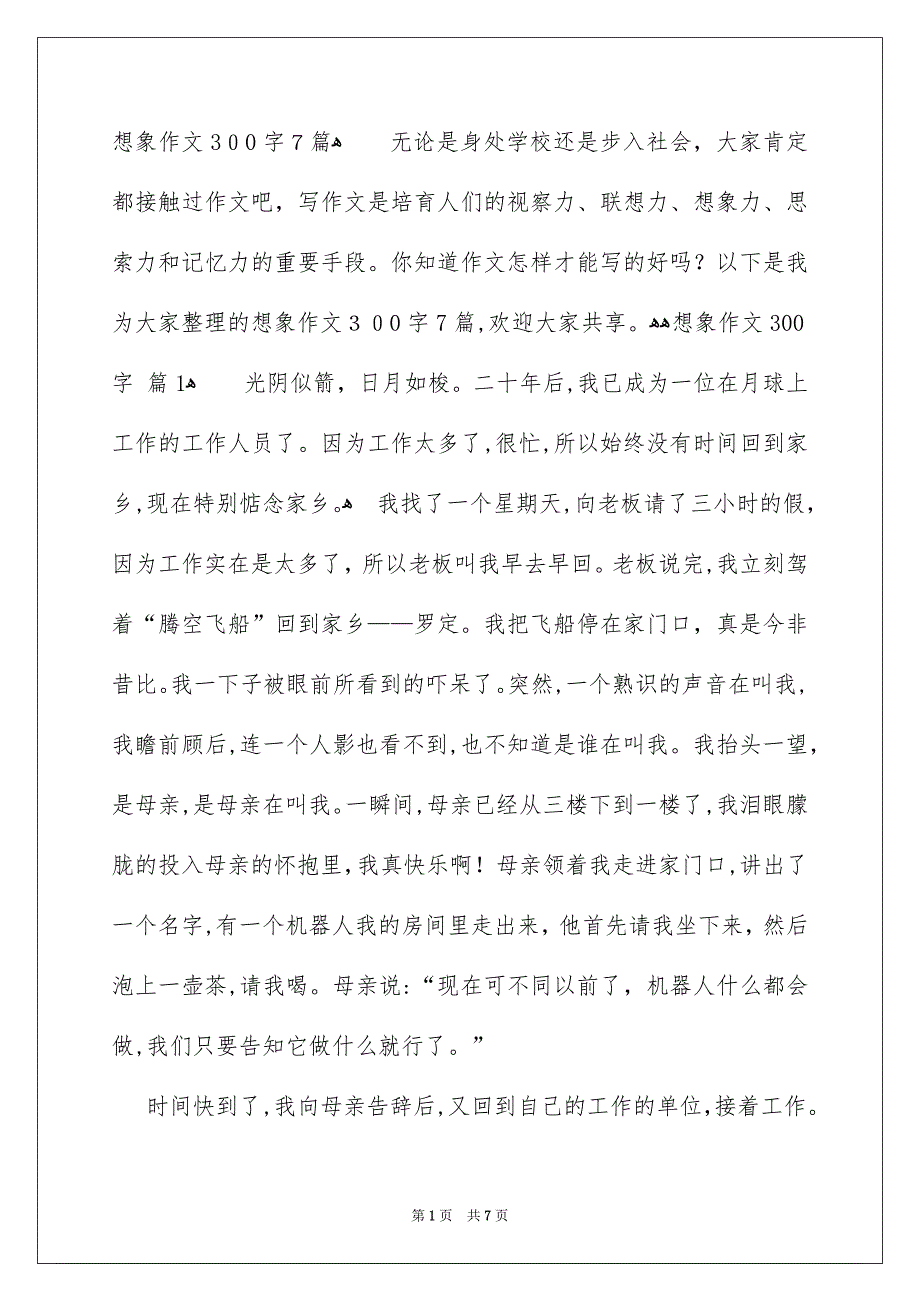 想象作文300字7篇ﻫ　　无论是身处学校还是步入社会，大家肯定
都接触过作文吧，写作文是培育人们的视察力、联想力、想象力、思
索力和记忆力的重要手段。你知道作文怎样才能写的好吗？以下是我
为大家整理的想象作文300字7篇,欢迎大家共享。ﻫﻫ想象作文300
字 篇1ﻫ　　光阴似箭，日月如梭。二十年后,我已成为一位在月球上
工作的工作人员了。因为工作太多了,很忙,所以始终没有时间回到家
乡,现在特别惦念家乡。ﻫ　我找了一个星期天,向老板请了三小时的假,
因为工作实在是太多了，所以老板叫我早去早回。老板说完,我立刻驾
着“腾空飞船”回到家乡——罗定。我把飞船停在家门口，真是今非
昔比。我一下子被眼前所看到的吓呆了。突然,一个熟识的声音在叫我,
我瞻前顾后,连一个人影也看不到,也不知道是谁在叫我。我抬头一望,
是母亲,是母亲在叫我。一瞬间,母亲已经从三楼下到一楼了,我泪眼朦
胧的投入母亲的怀抱里,我真快乐啊！母亲领着我走进家门口,讲出了
一个名字,有一个机器人我的房间里走出来，他首先请我坐下来，然后
泡上一壶茶,请我喝。母亲说:“现在可不同以前了，机器人什么都会
做,我们只要告知它做什么就行了。”
时间快到了,我向母亲告辞后,又回到自己的工作的单位,接着工作。
第1页 共7页